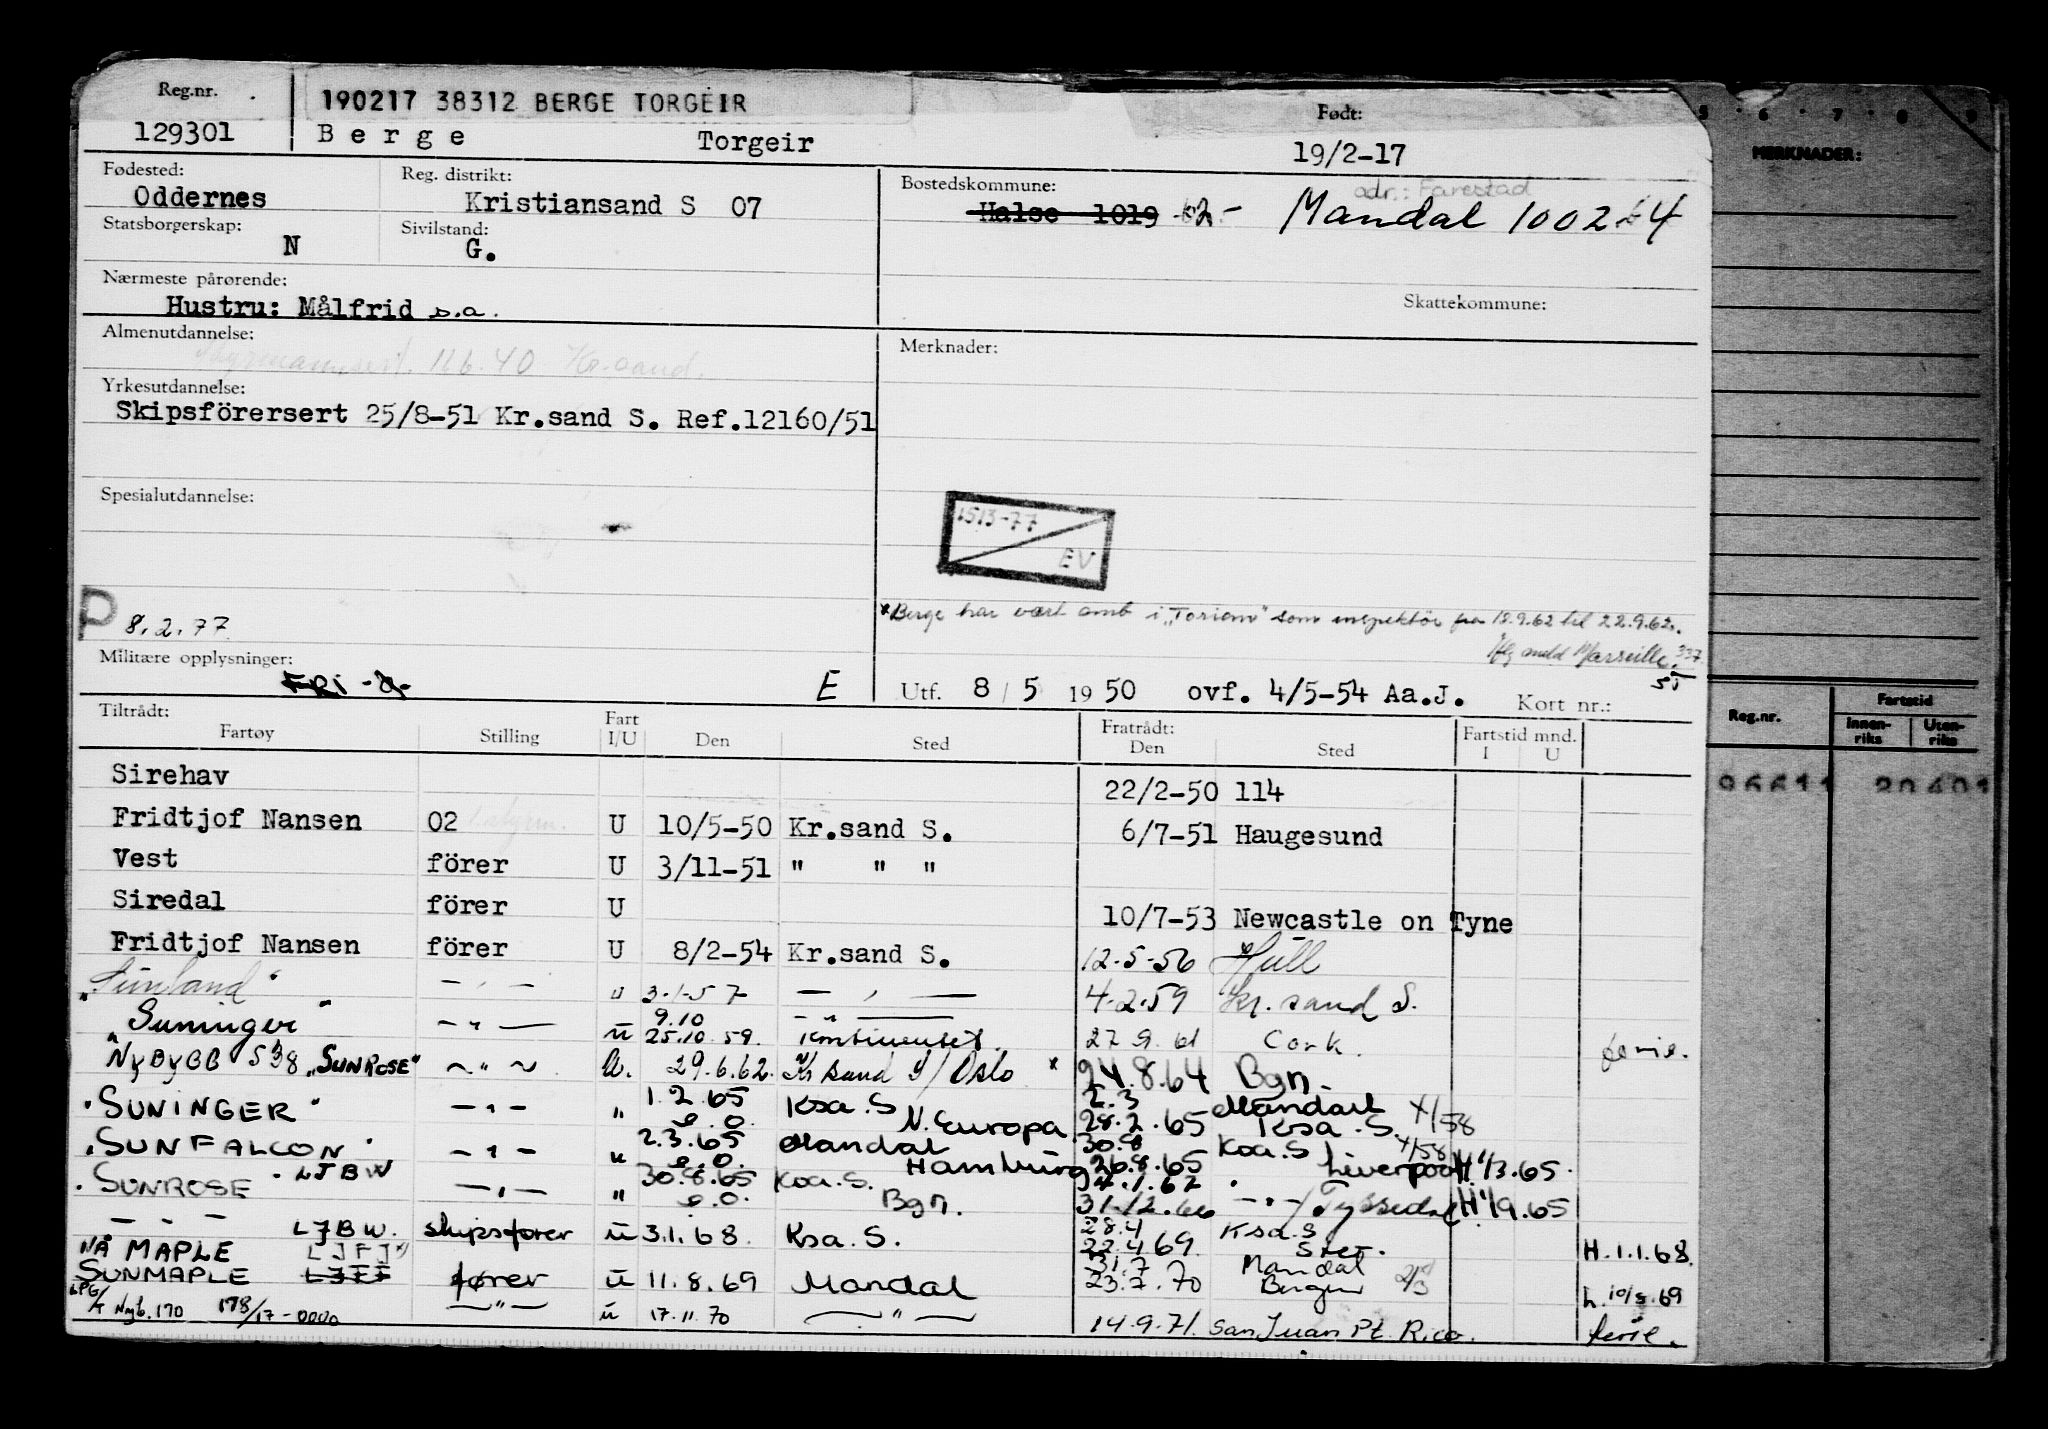 Reg.nr. 190217 38312 BERGE TORGEIR Født:
129301 Berge Torgeir 19/2-17
Fødested: Reg. distrikt: Bostedskommune: adr.: Farestad
Oddernes Kristiansand S 07 Halse 1019 Mandal 1002
Statsborgerskap: Sivilstand:
N G.
Nærmeste pårørende: Skattekommune:
Hustru: Målfrid s.a.
Almenutdannelse: Merknader:
Kr.sand.
Yrkesutdannelse:
Skipsförersert 25/8-51 Kr.sand S. Ref.12160/51
Spesialutdannelse:
1513-77
EV
P 8.2.77
*Berge har vært omb i "Torian" som inspektör fra 18.9.62 til 22.9.62.
meld Marseille 337
Militære opplysninger:
FRI E Utf. 8/5 1950 ovf. 4/5-54 Aa.J. Kort nr.:
Tiltrådt: Fratrådt:
Fartøy Stilling Fart I/U Den Sted Den Sted Fartstid mnd. I U
Sirehav 22/2-50 114
Fridtjof Nansen 02 U 10/5-50 Kr.sand S. 6/7-51 Haugesund
Vest förer U 3/11-51 " " "
Siredal förer U 10/7-53 Newcastle on Tyne
Fridtjof Nansen förer U 8/2-54 Kr.sand S. 12-5-56 Hull
"Sunland" - " - " 3-1-57 - " - 4.2.59 Kr. sand S.
"Suninger" - " - u 9.10 25.10.59. Kontinentet. 27.9.61 Cork. ferie.
NyByGG 538 "SUNROSE" - " - U. 29.6.62. Kr sand S/Oslo * 24.8.64 Bgn.
"SUNINGER" - " - " 1.2.65 Ksa.S N.Europa 2.3 28.2.65 Mandal Ksa.S. X/58
"SUNFALCON" - " - " 2.3.65 Mandal Hamburg 30.8 26.8.65 Koa.S X/58 Liverpool H 1/3.65.
"SUNROSE" LJBW - " - " 30.8.65 Koa.S. Bgn. 4.1.67 31.12.66 - " - / Tyssedal H 1/9.65
- - - LJBW. skipsfører u 3.1.68. Ksa.S. 28.4 22.4.69. Ksa.S H.1.1.68.
NÅ MAPLE
SUNMAPLE fører u 11.8.69 Mandal 31.7 23.7.70 Mandal Bergen h. 10/8.69
LPG/T Nyb.170 178/17-0000 - " - u 17.11.70 - " - 14.9.71. San Juan Pt. Rico. ferie.
5 . 6 . 7 . 8 . 9
MERKNADER:
Reg.nr. Fartstid
Innen-riks Uten-riks